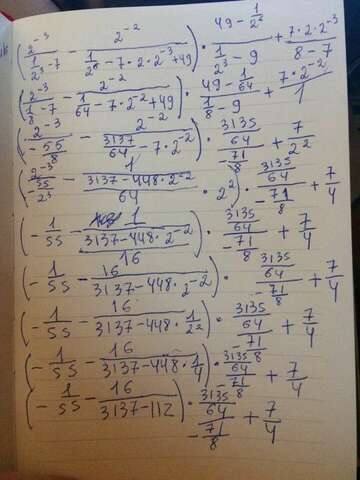 (2^-3/(1/2^3 - 7) - 2^-2/(1/2^6 - 7·2·2^-3 + 49)) · (49 - 1/2^2)/(1/2^3 - 9) + 7·2·2^-3/(8-7)
(2^-3/(1/8 - 7) - 2^-2/(1/64 - 7·2^-2 + 49)) · (49 - 1/64)/(1/8 - 9) + 7·2^-2/1
(2^-3/(-55/8) - 2^-2/(3137/64 - 7·2^-2)) · (3135/64)/(-71/8) + 7/2^2
(2^-3/(-55/2^3) - 1/((3137-448·2^-2)/64 · 2^2)) · (3135/64)/(-71/8) + 7/4
(-1/55 - 1/((3137-448·2^-2)/16)) · (3135/64)/(-71/8) + 7/4
(-1/55 - 16/(3137-448·2^-2)) · (3135/64)/(-71/8) + 7/4
(-1/55 - 16/(3137-448·1/2^2)) · (3135/64)/(-71/8) + 7/4
(-1/55 - 16/(3137-448·1/4)) · (3135/64)/(-71/8) + 7/4
(-1/55 - 16/(3137-112)) · (3135/64)/(-71/8) + 7/4